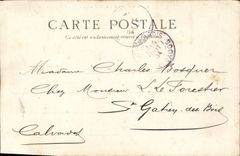 CARTE POSTALE
Ce côté est exclusivement réservé
Madame Charles Bosquer
Chez Monsieur L. Le Forestier
St Gatien des Bois
Calvados